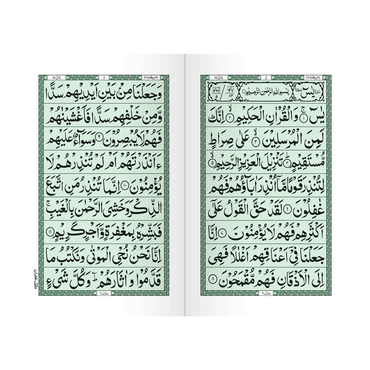 بِسْمِ اللهِ الرَّحْمٰنِ الرَّحِيْمِ
يٰسٓ ۚ وَالْقُرْاٰنِ الْحَكِيْمِ ۙ اِنَّكَ
لَمِنَ الْمُرْسَلِيْنَ ۙ عَلٰى صِرَاطٍ
مُّسْتَقِيْمٍ ؕ تَنْزِيْلَ الْعَزِيْزِ الرَّحِيْمِ ۙ
لِتُنْذِرَ قَوْمًا مَّاۤ اُنْذِرَ اٰبَآؤُهُمْ فَهُمْ
غٰفِلُوْنَ ۶ لَقَدْ حَقَّ الْقَوْلُ عَلٰۤى
اَكْثَرِهِمْ فَهُمْ لَا يُؤْمِنُوْنَ ۷ اِنَّا
جَعَلْنَا فِيْۤ اَعْنَاقِهِمْ اَغْلٰلًا فَهِيَ
اِلَى الْاَذْقَانِ فَهُمْ مُّقْمَحُوْنَ ۸
وَجَعَلْنَا مِنْۢ بَيْنِ اَيْدِيْهِمْ سَدًّا
وَّمِنْ خَلْفِهِمْ سَدًّا فَاَغْشَيْنٰهُمْ
فَهُمْ لَا يُبْصِرُوْنَ ۹ وَسَوَآءٌ عَلَيْهِمْ
ءَاَنْذَرْتَهُمْ اَمْ لَمْ تُنْذِرْهُمْ لَا
يُؤْمِنُوْنَ ۱۰ اِنَّمَا تُنْذِرُ مَنِ اتَّبَعَ
الذِّكْرَ وَخَشِيَ الرَّحْمٰنَ بِالْغَيْبِ ۚ
فَبَشِّرْهُ بِمَغْفِرَةٍ وَّاَجْرٍ كَرِيْمٍ ۱۱
اِنَّا نَحْنُ نُحْيِ الْمَوْتٰى وَنَكْتُبُ مَا
قَدَّمُوْا وَاٰثَارَهُمْ ؕ وَكُلَّ شَيْءٍ